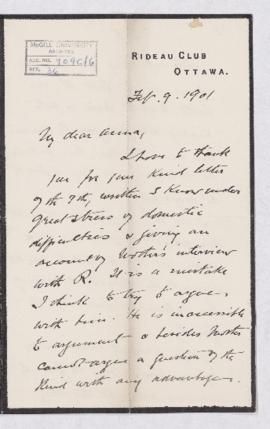 McGILL UNIVERSITY
ARCHIVES
ACC. NO. 1096/6
REF. 36
RIDEAU CLUB
OTTAWA.
Feb. 9. 1901
My dear Anna,
I have to thank
you for your kind letter
of the 7th, written I know under
great stress of domestic
difficulties & giving an
account of interview
with R. It is a mistake
I think to try to argue
with him. He is inaccessible
to argument & besides
cannot argue a question of the
kind with any advantage.